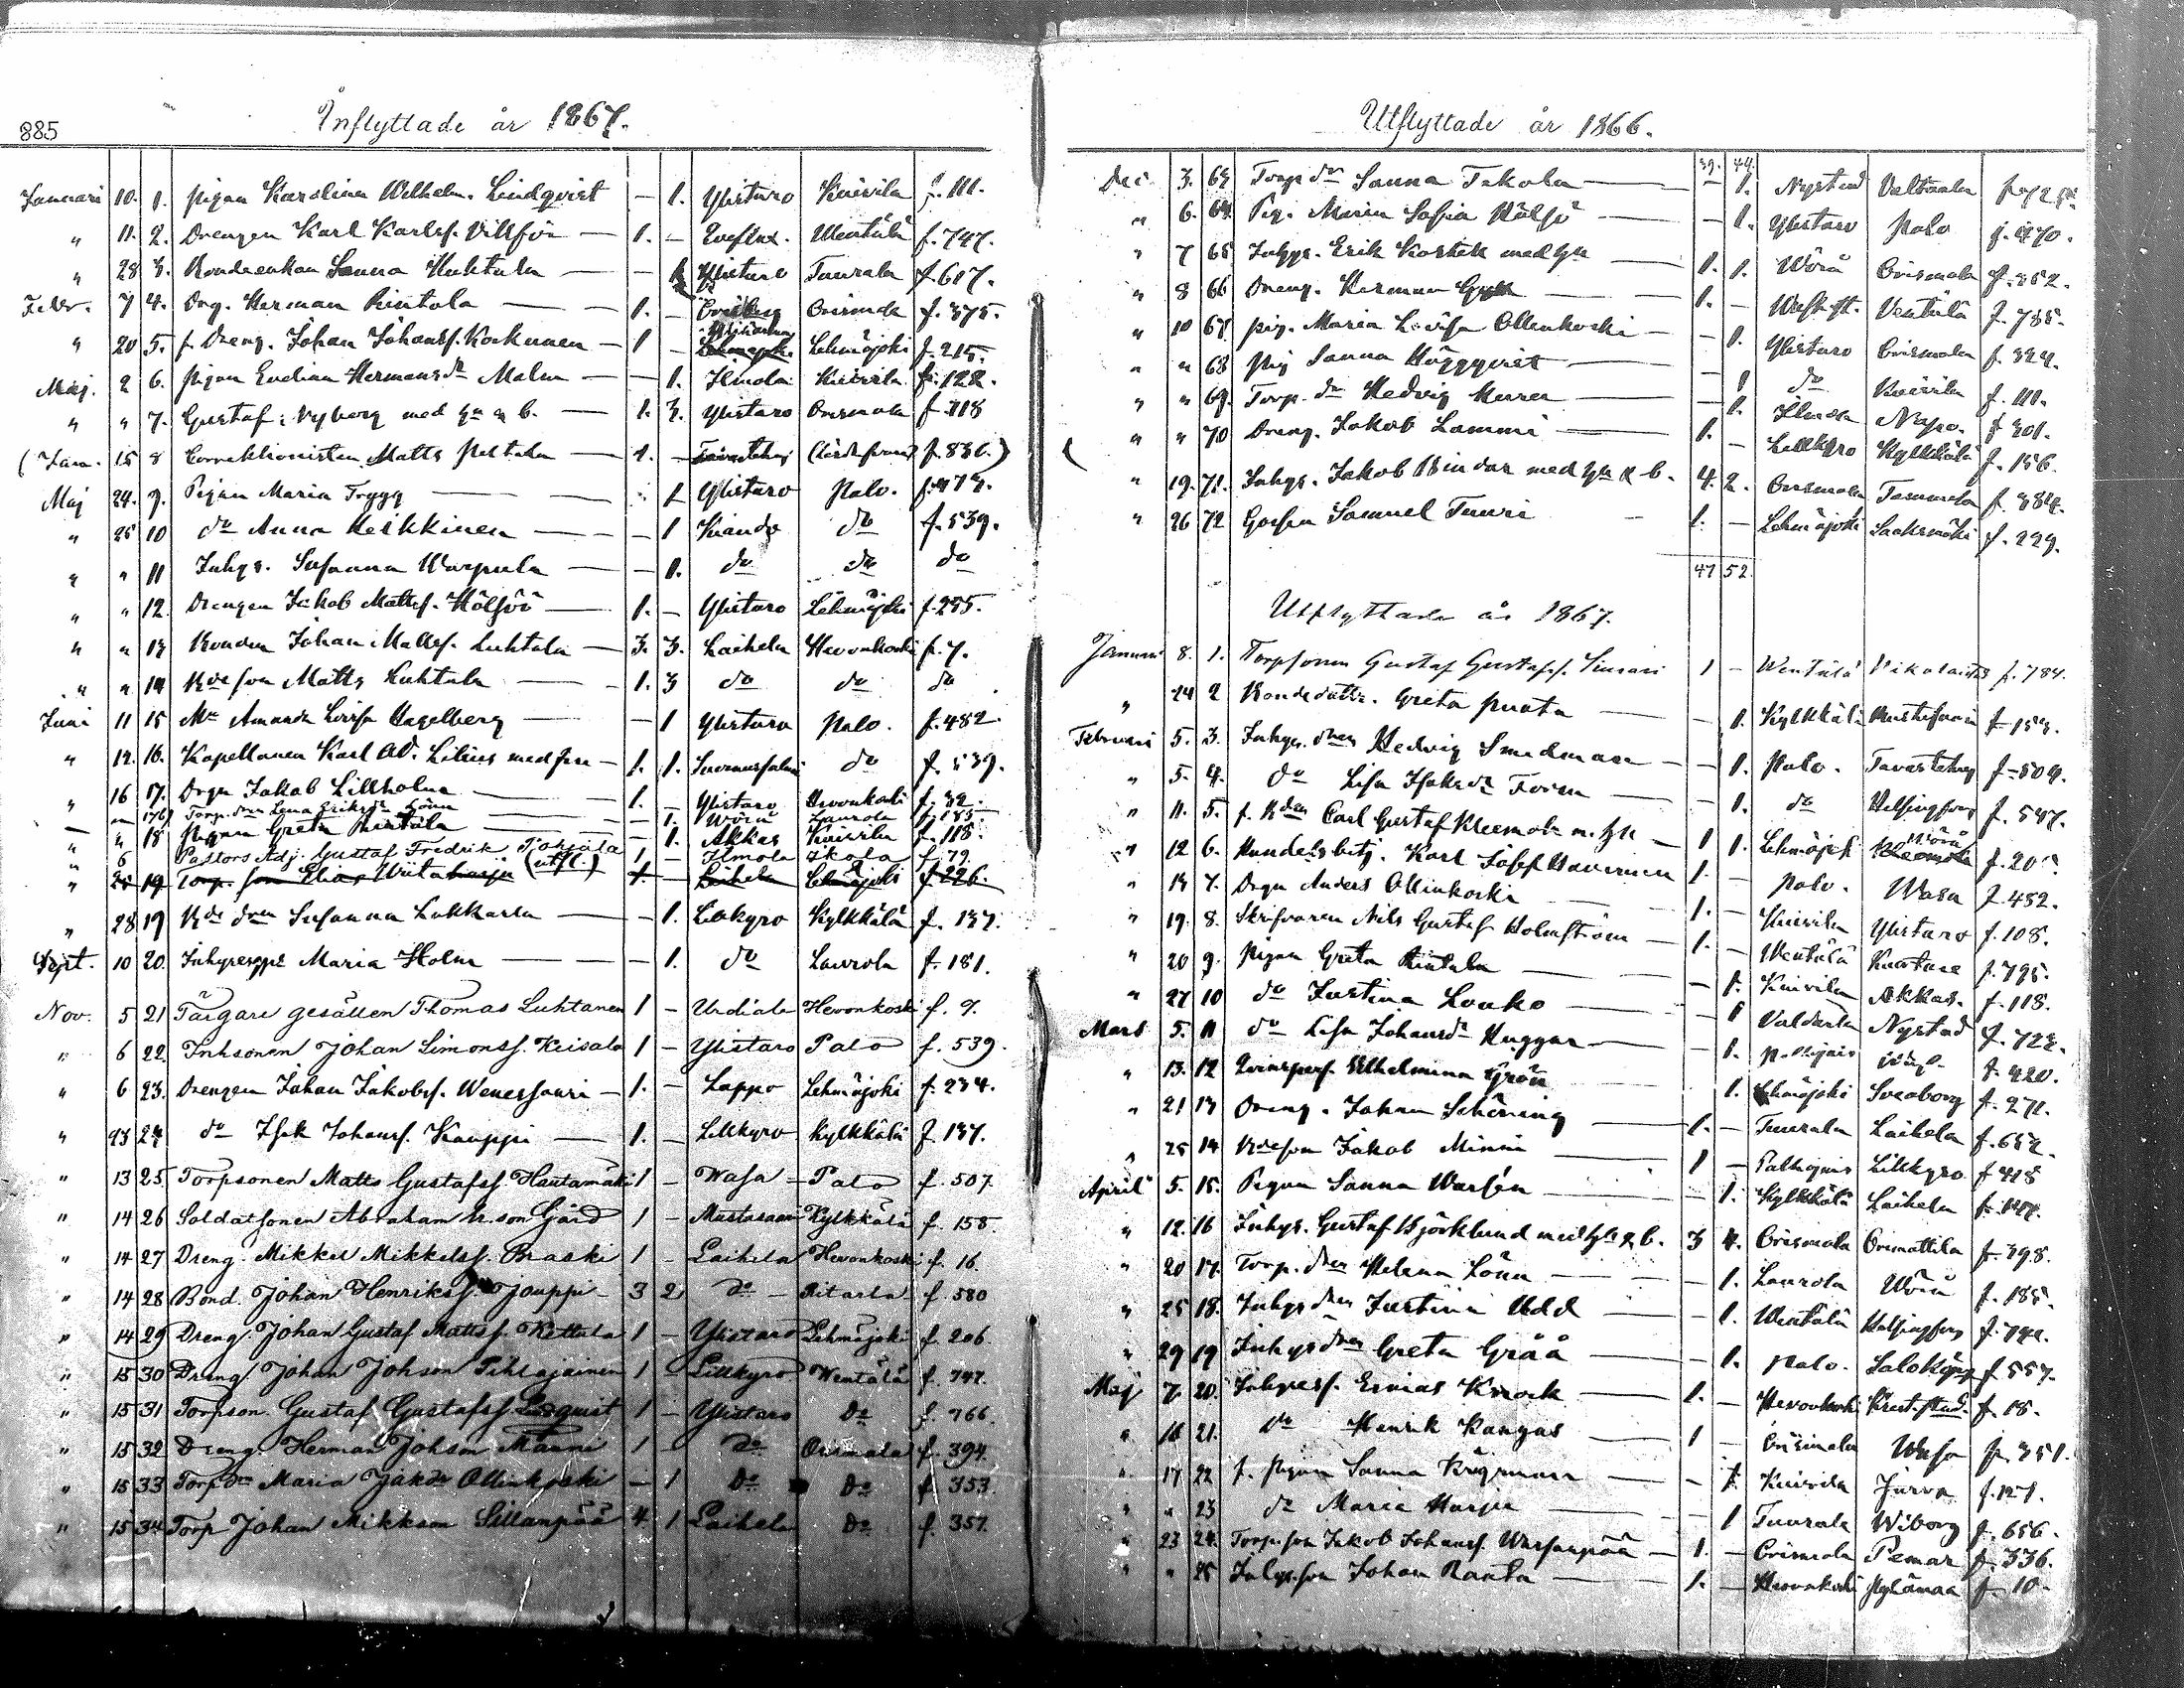 885
Inflyttade år 1867.
Januari 10. 1. Pigan Karolina Wilhelm. Lindqvist — 1. Ylistaro Kuivila f. 111.
" 11. 2. Drengen Karl Karlss. Villför — 1. — Ventälä f. 747.
" 28 3. Bondeenkan Sanna Huhtala — 1 Ylistaro Tuurala f. 617.
Febr. 7 4. Drg. Herman Rintola — 1. — Orismala f. 375.
" 20 5. f. Dreng. Johan Johanss. — 1 — Lehmäjoki f. 215.
Maj. 2 6. Pigan Evelina Hermansdr Malm — 1. Ilmola Kuivila f. 122.
" " 7. Gustaf Nyberg med h. o b. — 1. 3. Ylistaro Orismala f. 318
(Jan. 15 8 Correktionisten Matts Peltola — 1. — f. 836.)
Maj 24. 9. Pigan Maria Trygg — 1 Ylistaro Palo. f. 473.
" 25 10 do Anna Heikkinen — 1 Kiando do f. 539.
" " 11 Inhys. Susanna Warpula — 1. do do do
" " 12. Drengen Jakob Mattss. Hölsöö — 1. — Ylistaro Lehmäjoki f. 255.
" " 13 Bonden Johan Mattss. Luhtala — 3. 3. Laihela Hevonkoski f. 7.
" " 14 Bde son Matts Luhtala — 1. 3 do do do
Juni 11 15 Amanda Lovisa Hagelberg — 1 Ylistaro Palo. f. 482.
" 12. 16. Kapellanen Karl Ad. Lilius med fru — 1. 1. do f. 539.
" 16 17. Drgn Jakob Lillholm — 1. — Ylistaro Hevonkoski f. 32.
— " 17b) Torp. dren Lena Eriksdr Lönn — 1. Wörå Laurola f. 185.
" " 18 Pigan Greta Rintala — 1. Akkas Kuivila f. 118.
" 6 Pastors Adj. Gustaf Fredrik (utfl.) 1 — Ilmola Ikola f. 79.
" 25 19 Torp. son Elias Wiitaharju 1. — Laihela Lehmäjoki f. 226.
" 28 19 Bde dren Susanna Lakkarla — 1. Lillkyro Kylkkälä f. 137.
Sept. 10 20. Maria Holm — 1. do Laurola f. 181.
Nov. 5 21 Färgare gesällen Thomas Luhtanen 1 — Urdiala Hevonkoski f. 9.
" 6 22. Inhsonen Johan Simonss. Keisala 1 — Ylistaro Palo f. 539.
" 6 23. Drengen Johan Jakobss. Wenessauri — 1. — Lappo Lehmäjoki f. 234.
" 23 24 do Isak Johanss. Kauppi — 1. — Lillkyro Kylkkälä f. 137.
" 13 25 Torpsonen Matts Gustafss. Hautamäki 1 — Wasa — Palo f. 507.
" 14 26 Soldatsonen Abraham Gärd 1 — Mustasaari Kylkkälä f. 158.
" 14 27 Dreng. Mikkel Mikkelss. Braski 1 — Laihela Hevonkoski f. 16.
" 14 28 Bond. Johan Henrikss. Jouppi — 3 2 do — Ritarla f. 580
" 14 29 Dreng. Johan Gustaf Mattss. Kettula 1 — Ylistaro Lehmäjoki f. 206
" 15 30 Dreng Johan Johson Pihlajainen 1 — Lillkyro Wentälä f. 747.
" 15 31 Torpson. Gustaf Gustafss. 1 — Ylistaro do f. 766.
" 15 32 Dreng. Herman Johson Manni 1 — do Orismala f. 394.
" 15 33 Torpdr Maria Jakdr Ollinkoski — 1 do do f. 353.
" 15 34 Torp Johan Mikkson Sillanpää 4 1 Laihela do f. 357.
Utflyttade år 1866.
39. 44.
Dec. 3. 63 Torp dr Sanna Takola — 1. Nystad Valtaala
" 6. 64. Pig. Maria Sofia Hölsö — 1. Ylistaro Palo f. 470.
" 7 65 Inhys. Erik Koskik med h. 1. 1. Wörå Orismala f. 352.
" 8 66 Dreng. Herman 1. — Ventälä f. 785.
" 10 67 Pig. Maria Lovisa Ollinkoski — 1. Ylistaro Orismala f. 324.
" " 68 Pig Sanna Höggqvist — 1 do Kuivila f. 111.
" " 69. Torp. dr Hedvig — 1. Ilmola f. 301.
" " 70 Dreng. Jakob Lammi — 1. — Lillkyro Kylkkälä f. 156.
" 19. 71. Inhys. Jakob Bindar med h. & b. 4. 2. Orismala Tammela f. 384.
" 26 72 Gossen Samuel Tuuri — 1. — Lehmäjoki Saaksmäki f. 229.
47 52.
Utflyttade år 1867.
Januari 8. 1. Torpsonen Gustaf Gustafss. 1 — Wentälä f. 784.
" 24 2 Bondedottr. Greta Puota — 1. Kylkkälä Mustasaari f. 153.
Februari 5. 3. Inhys. dren Hedvig Smedman — 1. Palo. Tavastehus f. 509.
" 5. 4. do Lisa Isaksdr — 1. do Helsingfors f. 547.
" 11. 5. f. Bden Carl Gustaf Kleemola m. h. — 1 1. Lehmäjoki Wörå f. 205
" 12 6. Handelsbetj. Karl Josef 1. — Palo. Wasa f. 482.
" 14 7. Drgn Anders Ollinkoski — 1. — Kuivila Ylistaro f. 108.
" 19. 8. Skrifvaren Nils Gustaf Holmström — 1. — Wentälä Kuortane f. 795.
" 20 9. Pigan Greta Rintala — 1. Kuivila Akkas. f. 118.
" 27 10 do Justina Louko — 1 Valdarla Nystad f. 722.
Mars 5. 11 do Lisa Johansdr Huggar — 1. f. 420.
" 13. 12 Wilhelmina Grön — 1. Lehmäjoki Sveaborg f. 271.
" 21 13 Dreng. Johan Schöning — 1. — Tuurala Laihela f. 652.
" 25 14 Bdeson Jakob Minni — 1 — Lillkyro f. 418
April 5. 15. Pigan Sanna Warsén — 1. Kylkkälä Laihela f. 147.
" 12. 16 Inhys. Gustaf Björklund med h. & b. 3 4. Orismala Orimattila f. 398.
" 20 17. Torp. dren Helena Lönn — 1. Laurola Wörå f. 185.
" 25 18. Inhys dren Justina Udd — 1. Wentälä Helsingfors f. 742.
" 29 19 Inhys dren Greta Gråå — 1. Palo. f. 557.
Maj 7. 20. Inhyress. Ernias Knock — 1. — Hevonkoski f. 18.
" 16 21. do Henrik Kangas — 1 — Orismala Wasa f. 351.
" 17 22 f. Pigan Sanna — 1. Kuivila Jurva f. 121.
" " 23 do Maria Harju — 1 Tuurala Wiborg f. 656.
" 23 24. Torp. son Jakob Johanss. Warsanpää — 1. — Orismala Pemar f. 336.
" " 25 Inhys. son Johan Ranta — 1. — Hevonkoski f. 10.